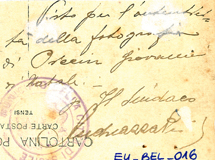 Visto per l'autentici
tà della fotografia
di Precin Giovanni
Natale.
Il Sindaco
CARTOLINA PO
CARTE POSTA
TENSI
EU-BEL-016